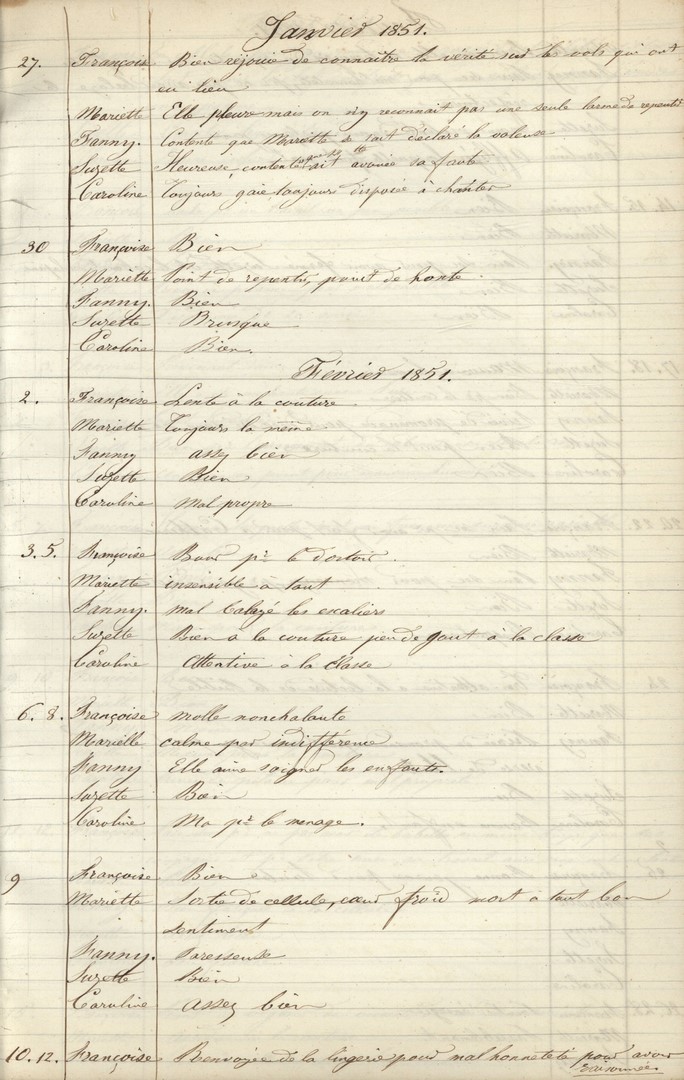 Janvier 1851.
27. Françoise Bien réjouie de connaître la vérité sur les vols qui ont
eu lieu
Mariette Elle pleure mais on n'y reconnait pas une seule larme de repentir
Fanny. Contente que Mariette se soit déclaré la voleuse
Suzette Heureuse, contente que M.tte ait avouée sa faute
Caroline Toujours gaie toujours disposée à chanter
30 Françoise Bien
Mariette Point de repentir, point de honte.
Fanny. Bien
Suzette Brusque
Caroline Bien.
Février 1851.
2. Françoise Lente à la couture
Mariette Toujours la même
Fanny assez bien
Suzette Bien
Caroline Mal propre
3. 5. Françoise pr le dortoir.
Mariette insensible à tout
Fanny. mal balayé les escaliers
Suzette Bien à la couture peu de gout à la classe
Caroline Attentive à la classe
6. 8. Françoise molle nonchalante
Mariette calme par indifférence
Fanny Elle aime soigner les enfants.
Suzette Bien
Caroline pr le menage.
9 Françoise Bien
Mariette Sortie de cellule, cœur froid mort à tout bon
sentiment
Fanny. Paresseuse
Suzette Bien
Caroline assez bien
10. 12. Françoise Renvoyée de la lingerie pour malhonneteté pour avoir
raisonnée